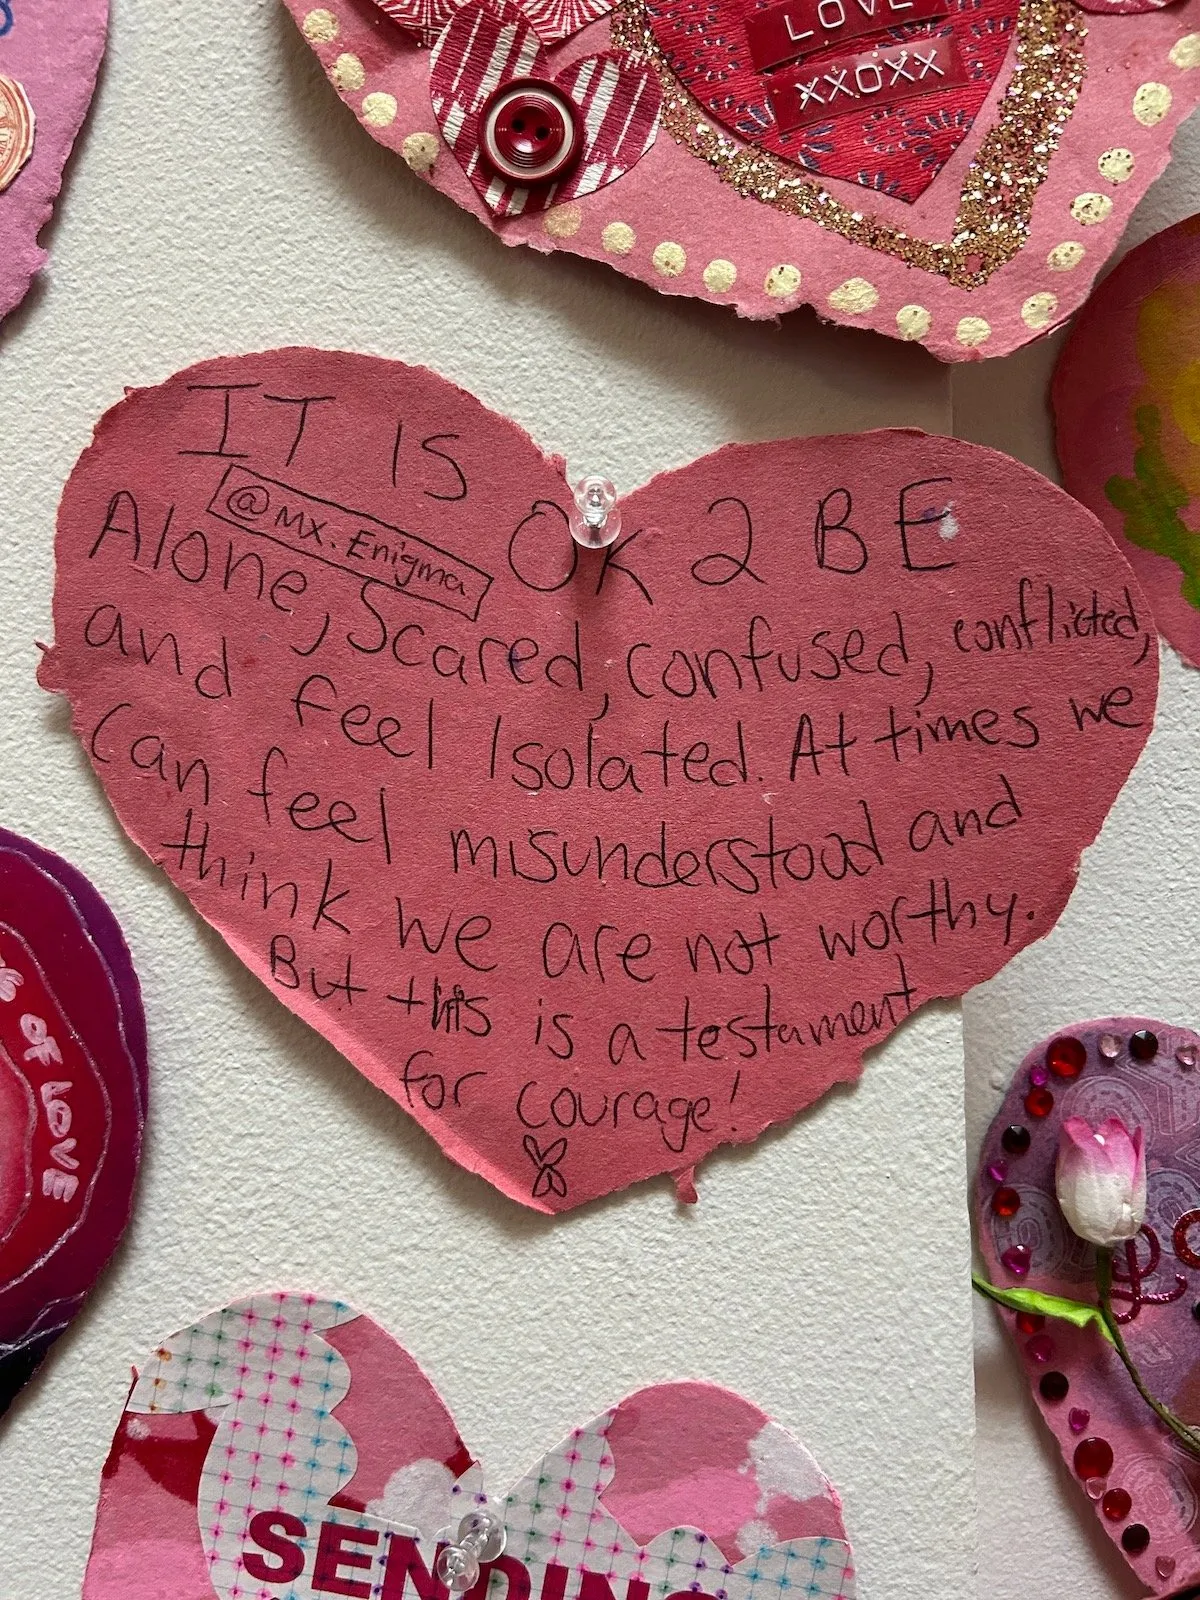 LOVE
XXOXX
IT IS OK 2 BE
@MX. Enigma
Alone, Scared, confused, conflicted,
and feel Isolated. At times we
can feel misunderstood and
think we are not worthy.
But this is a testament
for courage!
OF LOVE
SENDING